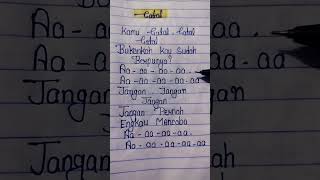 Gatal
Kamu - Gatal - Gatal
- Gatal
Bukankah Kau Sudah
Berpunya?
Aa - aa - aa - aa
Aa - aa - aa - aa - aa
Jangan - Jangan
Jangan
Jangan Pernah
Engkau Mencoba
Aa - aa - aa - aa.
Aa - aa - aa - aa - aa